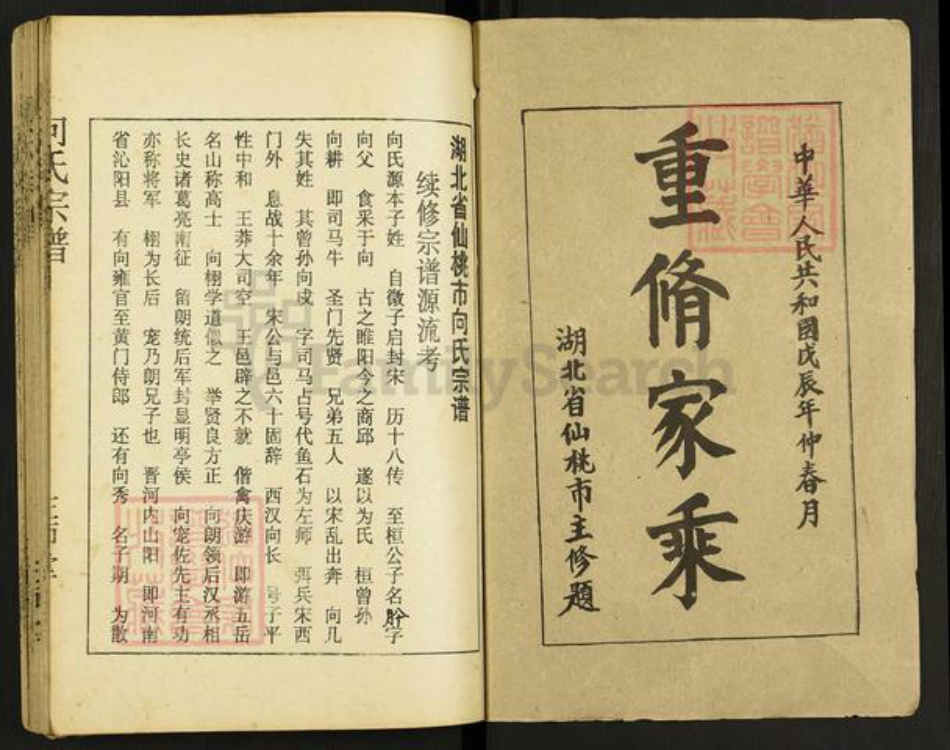 中華人民共和國戊辰年仲春月
重脩家乘
湖北省仙桃市主修題
湖北省仙桃市向氏宗谱
续修宗谱源流考
向氏源本子姓 自微子启封宋 历十八传 至桓公子名肸字
向父 食采于向 古之睢阳今之商邱 遂以为氏 桓曾孙
向耕 即司马牛 圣门先贤 兄弟五人 以宋乱出奔 向几
失其姓 其曾孙向戌 字司马占号代鱼石为左师 弭兵宋西
门外 息战十余年 宋公与邑六十固辞 西汉向长 号子平
性中和 王莽大司空 王邑辟之不就 偕禽庆游 即游五岳
名山称高士 向栩学道似之 举贤良方正 向朗领后汉丞相
长史诸葛亮南征 留朗统后军封显明亭侯 向宠佐先主有功
亦称将军 栩为长后 宠乃朗兄子也 晋河内山阳 即河南
省沁阳县 有向雍官至黄门侍郎 还有向秀 名子期 为散
向氏宗谱
FamilySearch